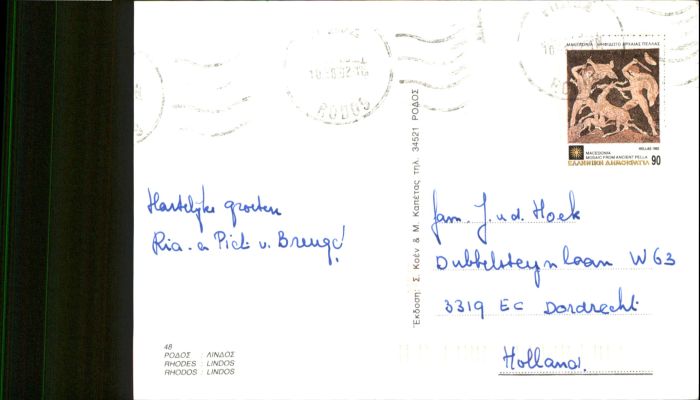 RODOS
ΜΑΚΕΔΟΝΙΑ ΨΗΦΙΔΩΤΟ ΑΡΧΑΙΑΣ ΠΕΛΛΑΣ
HELLAS 1992
MACEDONIA
MOSAIC FROM ANCIENT PELLA
ΕΛΛΗΝΙΚΗ ΔΗΜΟΚΡΑΤΙΑ 90
Hartelijke groeten
Ria en Piet v. Breugel
Έκδοση: Σ. Κοέν & Μ. Καπέτας τηλ. 34521 ΡΟΔΟΣ
fam. J. v.d. Hoek
Dubbelsteynlaan W 63
3319 EC Dordrecht
Holland.
48
ΡΟΔΟΣ : ΛΙΝΔΟΣ
RHODES : LINDOS
RHODOS : LINDOS